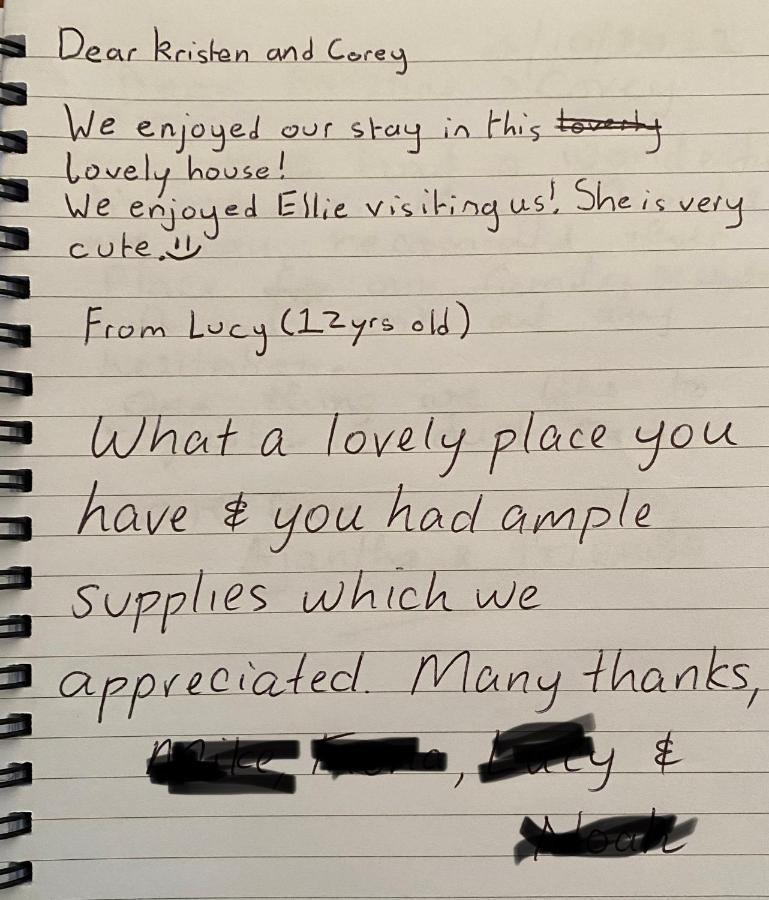 Dear Kristen and Corey
We enjoyed our stay in this
lovely house!
We enjoyed Ellie visiting us! She is very
cute.
From Lucy (12yrs old)
What a lovely place you
have & you had ample
supplies which we
appreciated. Many thanks,
&